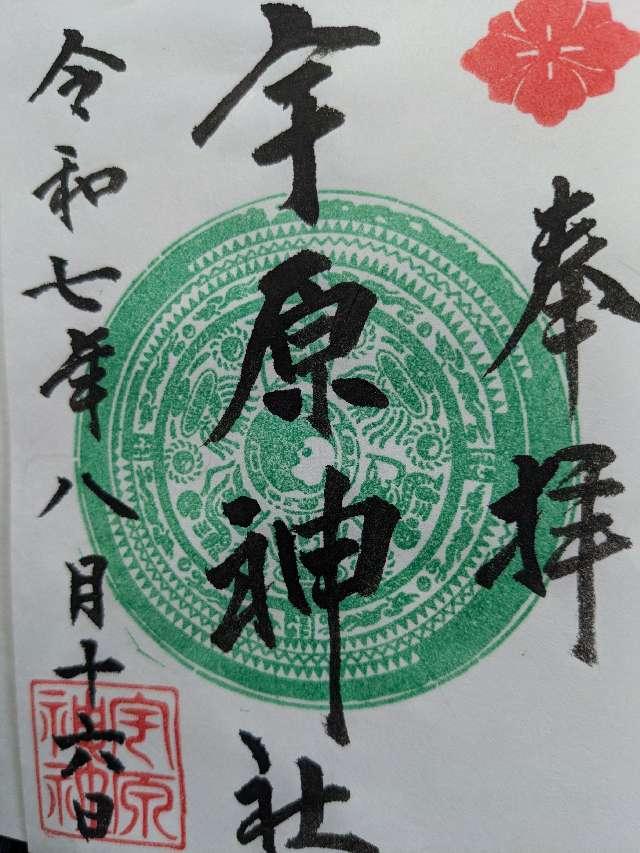 奉拝
宇原神社
令和七年八月十六日
宇原